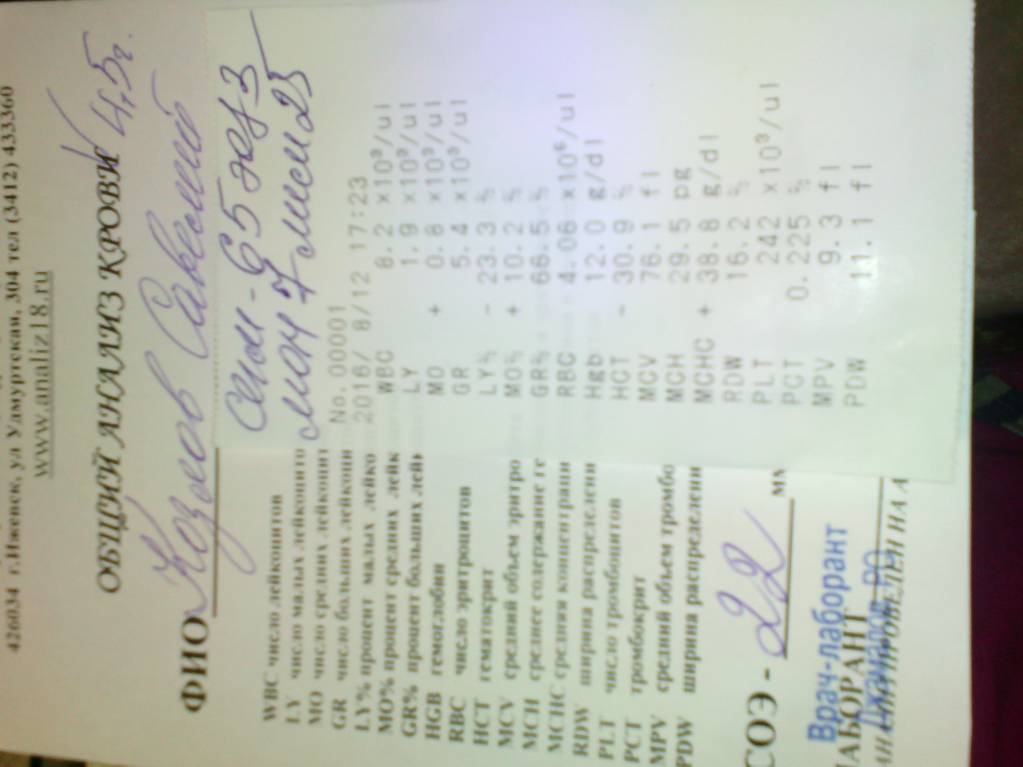 426034 г.Ижевск, ул Удмуртская, 304 тел (3412) 433360
www.analiz18.ru
ОБЩИЙ АНАЛИЗ КРОВИ
4,5г.
ФИО Козлов Савелий
сегм - 65 эоз 3
мон 7 лимф 25
No. 00001
2016/ 8/12 17:23
WBC 8.2 x10³/ul
LY 1.9 x10³/ul
MO + 0.8 x10³/ul
GR 5.4 x10³/ul
LY% - 23.3 %
MO% + 10.2 %
GR% 66.5 %
RBC 4.06 x10⁶/ul
Hgb 12.0 g/dl
HCT - 30.9 %
MCV 76.1 fl
MCH 29.5 pg
MCHC + 38.8 g/dl
RDW 16.2 %
PLT 242 x10³/ul
PCT 0.225 %
MPV 9.3 fl
PDW 11.1 fl
WBC число лейкоцитов
LY число малых лейкоцито
MO число средних лейкоцит
GR число больших лейкоци
LY% процент малых лейко
MO% процент средних лейк
GR% процент больших лей
HGB гемоглобин
RBC число эритроцитов
HCT гематокрит
MCV средний объем эритро
MCH среднее содержание ге
MCHC средняя концентраци
RDW ширина распределени
PLT число тромбоцитов
PCT тромбокрит
MPV средний объем тромбо
PDW ширина распределени
СОЭ - 22 мм
Врач-лаборант
ЛАБОРАНТ